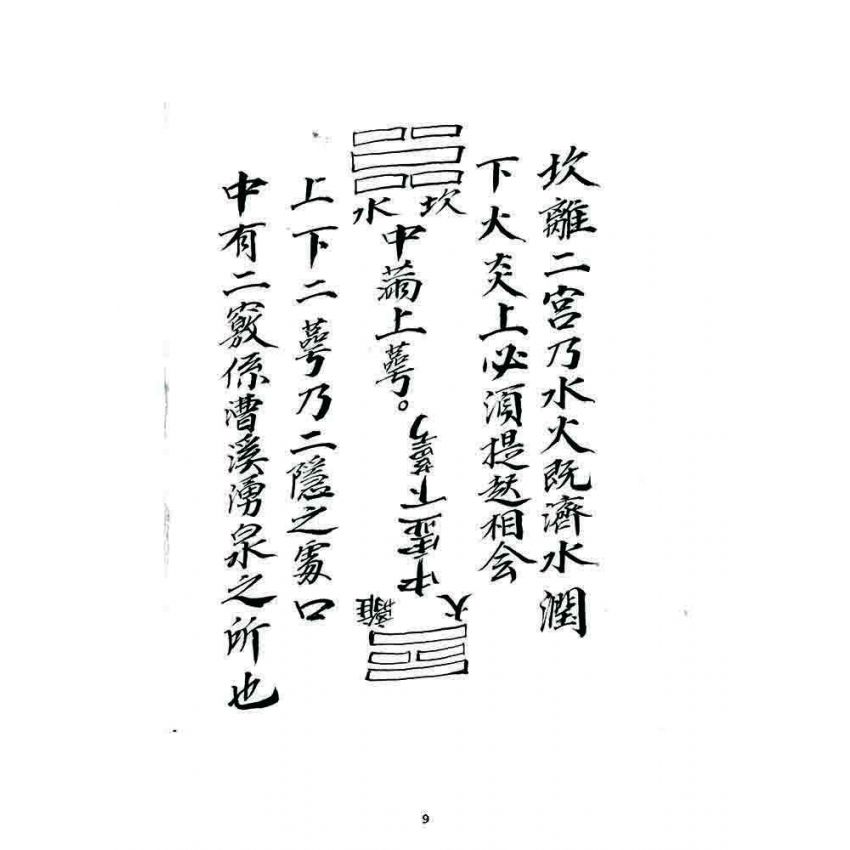 坎離二宮乃水火既濟水潤
下火炎上必須提起相会
坎水
中滿上萼。
離火
中虛下萼
上下二萼乃二隱之處口
中有二竅係漕溪湧泉之所也
9